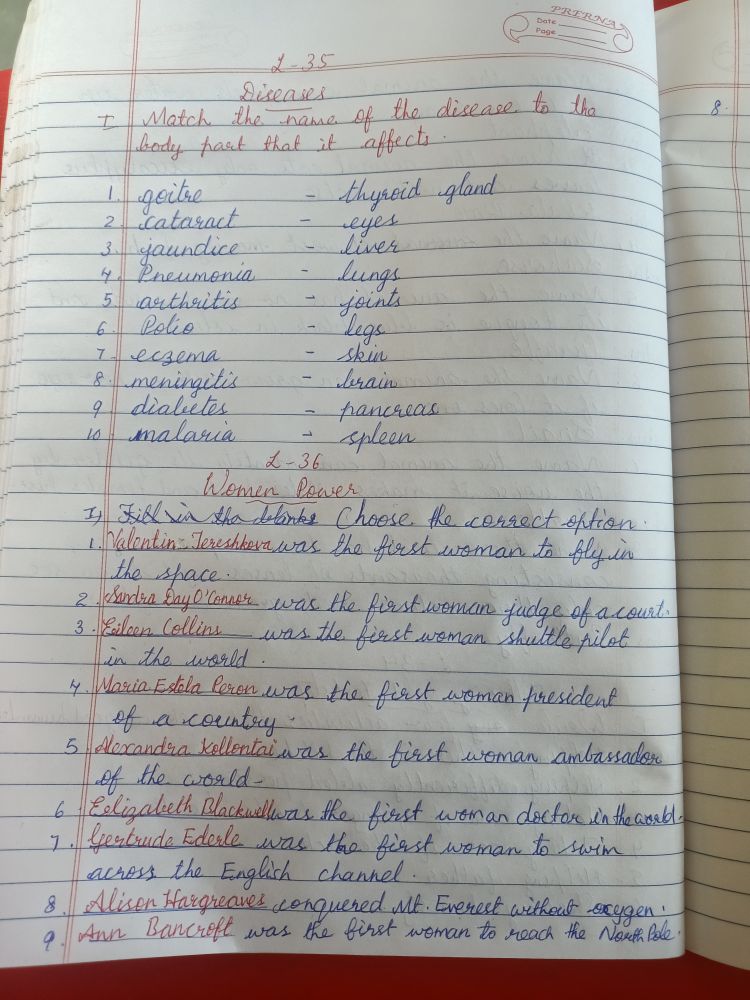 PRERNA
Date
Page
L-35
Diseases
I Match the name of the disease to the
body part that it affects.
8.
1. goitre - thyroid gland
2. cataract - eyes
3. jaundice - liver
4. Pneumonia - lungs
5. arthritis - joints
6. Polio - legs
7. eczema - skin
8. meningitis - brain
9. diabetes - pancreas
10. malaria - spleen
L-36
Women Power
I) Fill in the blanks Choose the correct option.
1. Valentin Tereshkova was the first woman to fly in
the space.
2. Sandra Day O'Connor was the first woman judge of a court.
3. Eileen Collins was the first woman shuttle pilot
in the world.
4. Maria Estela Peron was the first woman president
of a country.
5. Alexandra Kollontai was the first woman ambassador
of the world-
6. Eelizabeth Blackwell was the first woman doctor in the world.
7. Gertrude Ederle was the first woman to swim
across the English channel.
8. Alison Hargreaves conquered Mt. Everest without oxygen.
9. Ann Bancroft was the first woman to reach the North Pole.